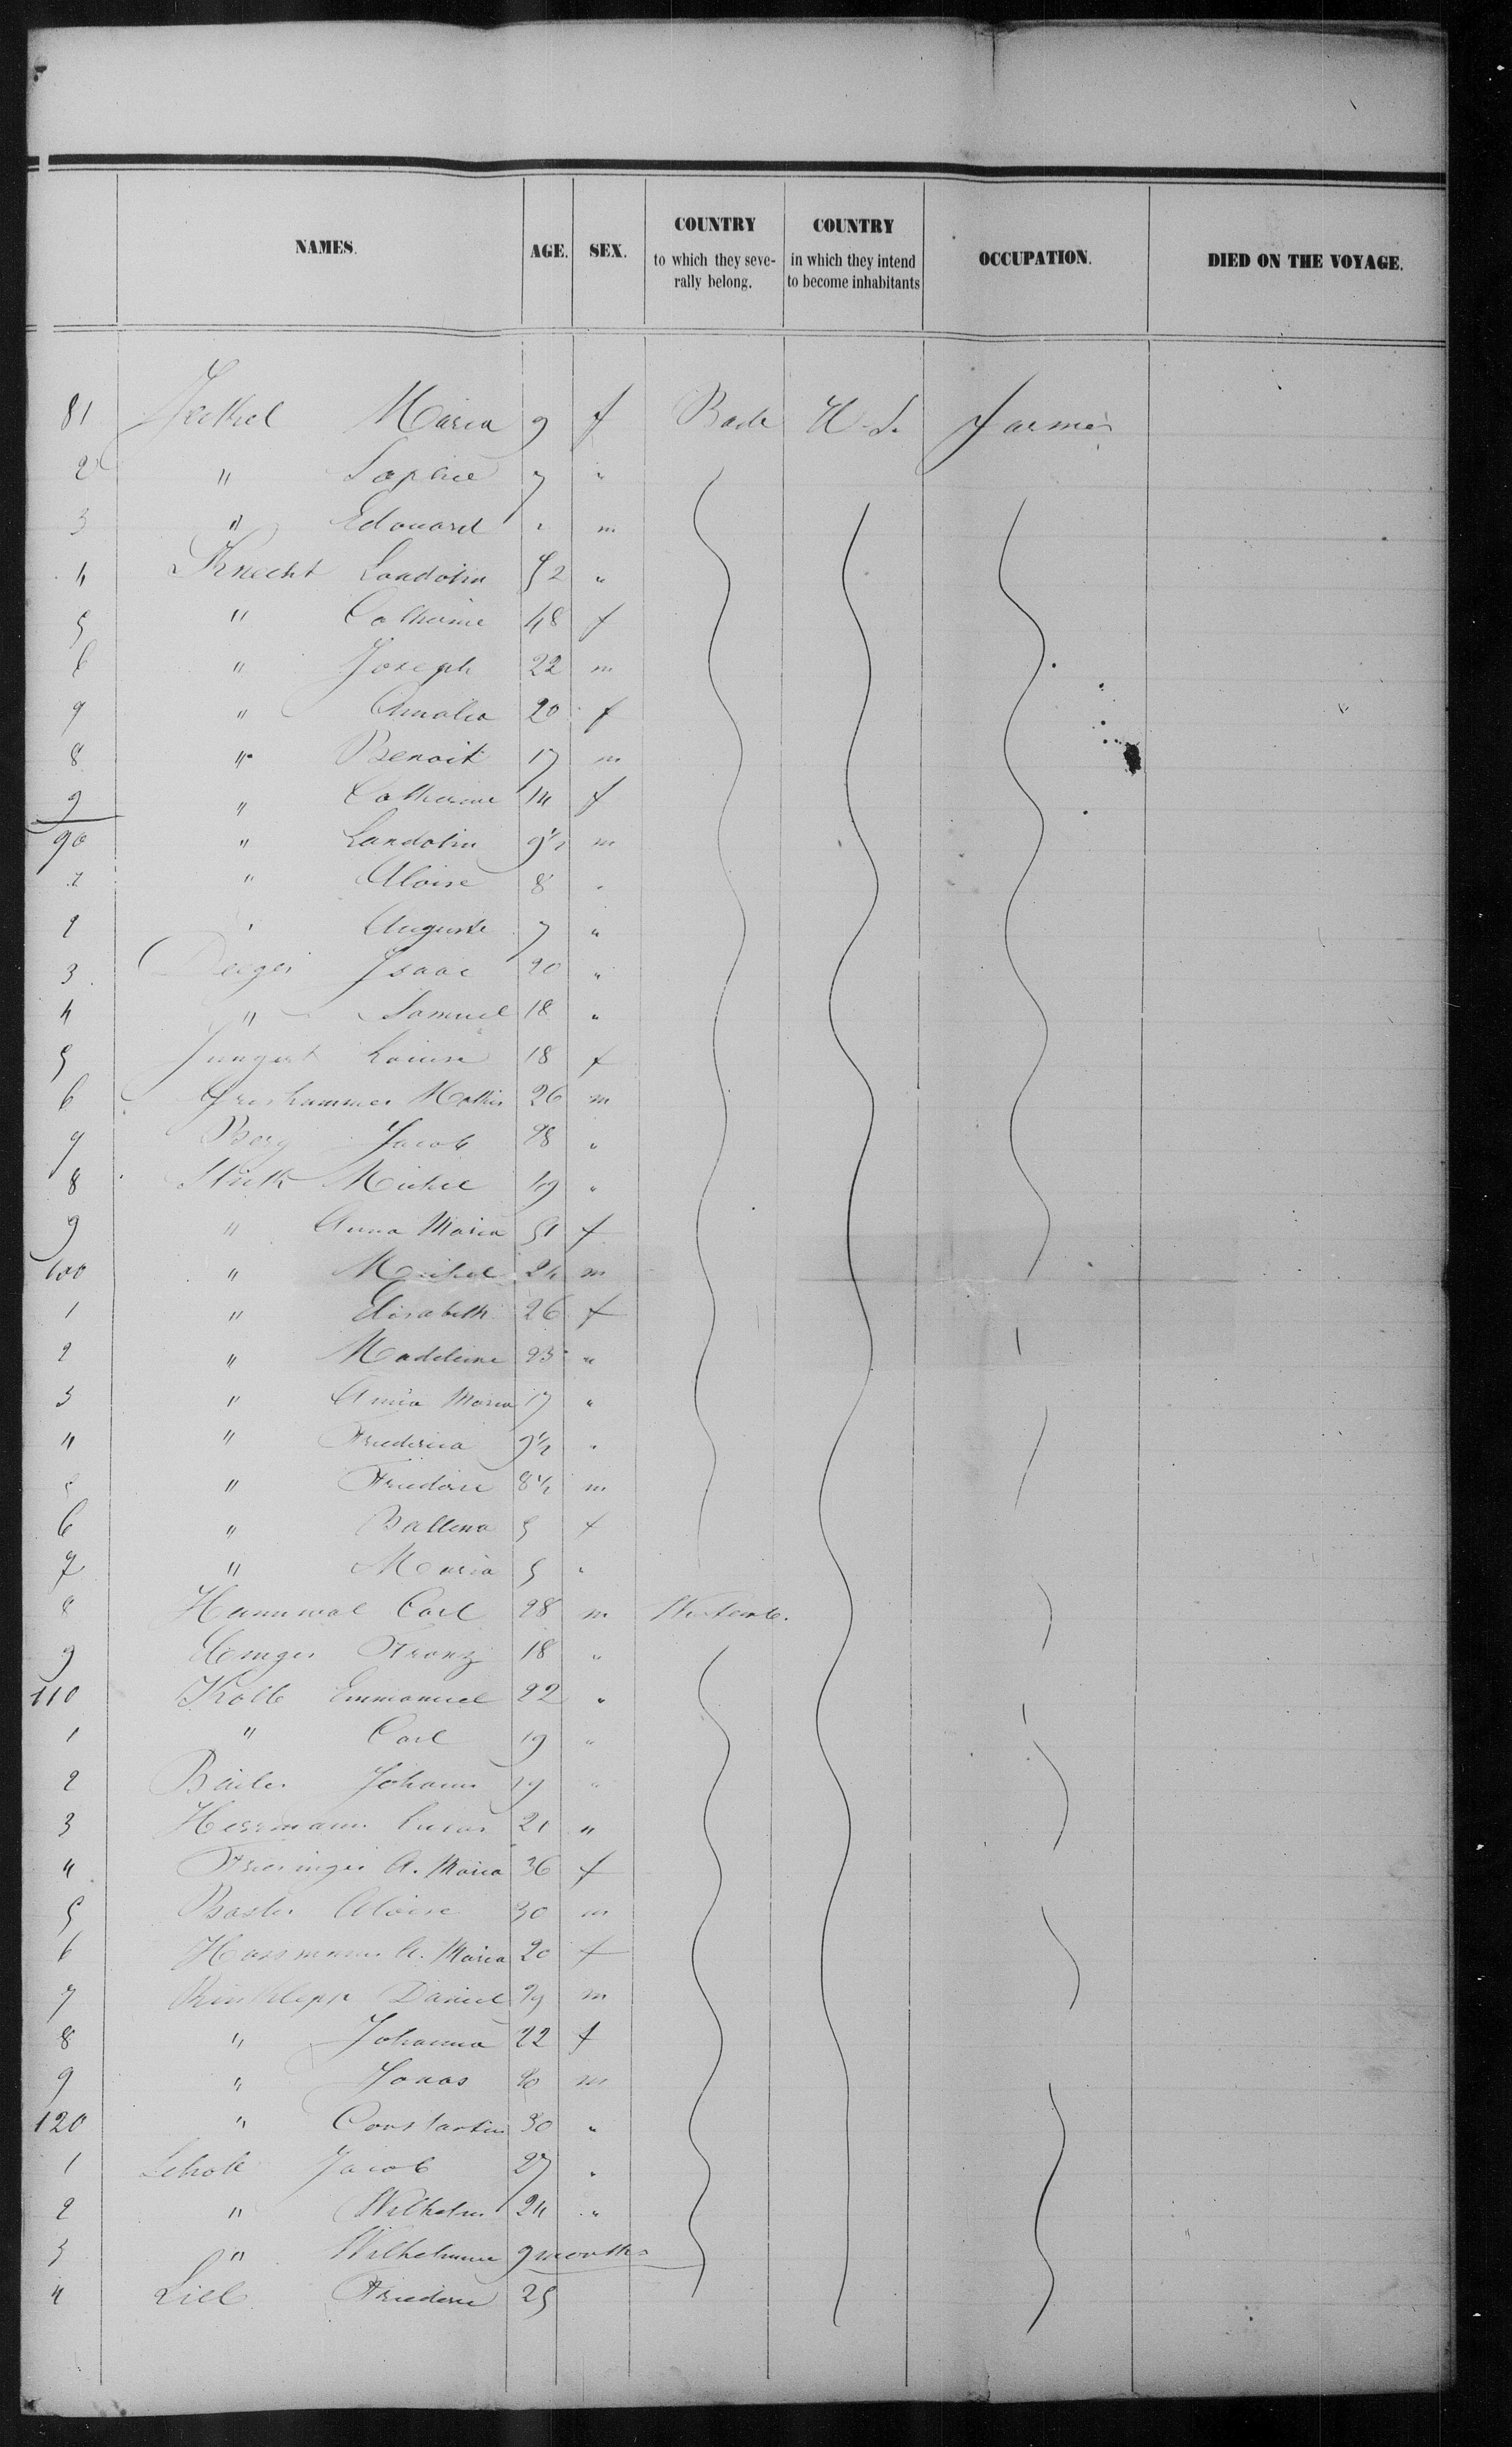 NAMES. AGE. SEX. COUNTRY to which they seve-rally belong. COUNTRY in which they intend to become inhabitants OCCUPATION. DIED ON THE VOYAGE.
81 Maria 9 f Bade U.S. Farmer
2 " Sophie 7 "
3 " Edouard m
4 Knecht Landolin 52 "
5 " Catherine 48 f
6 " Joseph 22 m
7 " Amalia 20 f
8 " Benoit 17 m
9 " Catherine 14 f
90 " Landolin 9½ m
1 " Aloise 8 "
2 " Auguste 7 "
3 Isaac 20 "
4 " Samuel 18 "
5 Jungert Louise 18 f
6 Mathis 26 m
7 Berg Jacob 28 "
8 Michel 49 "
9 " Anna Maria 51 f
100 " Michel 24 m
1 " Elisabeth 26 f
2 " Madeleine 23 "
3 " Anna Maria 17 "
4 " Friederica 9½ "
5 " 8½ m
6 " 5 f
7 " Maria 5 "
8 Carl 28 m Wurtemb.
9 Franz 18 "
110 Kolb Emmanuel 22 "
1 " Carl 19 "
2 Johann 19 "
3 Herrmann Lucas 21 "
4 A. Maria 36 f
5 Basler Aloise 30 m
6 A. Maria 20 f
7 Daniel 29 m
8 " Johanna 22 f
9 " Jonas m
120 " Constantin 30 "
1 Jacob 27 "
2 " Wilhelm 24 "
3 " Wilhelmine 9 months
4 25